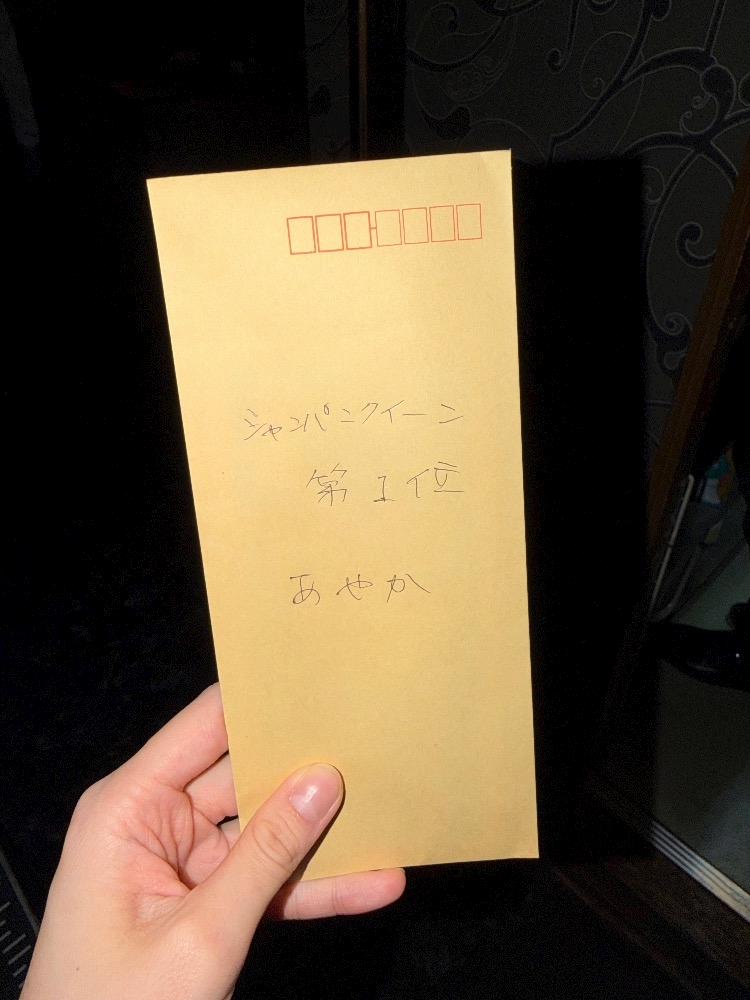 シャンパンクイーン
第1位
あやか